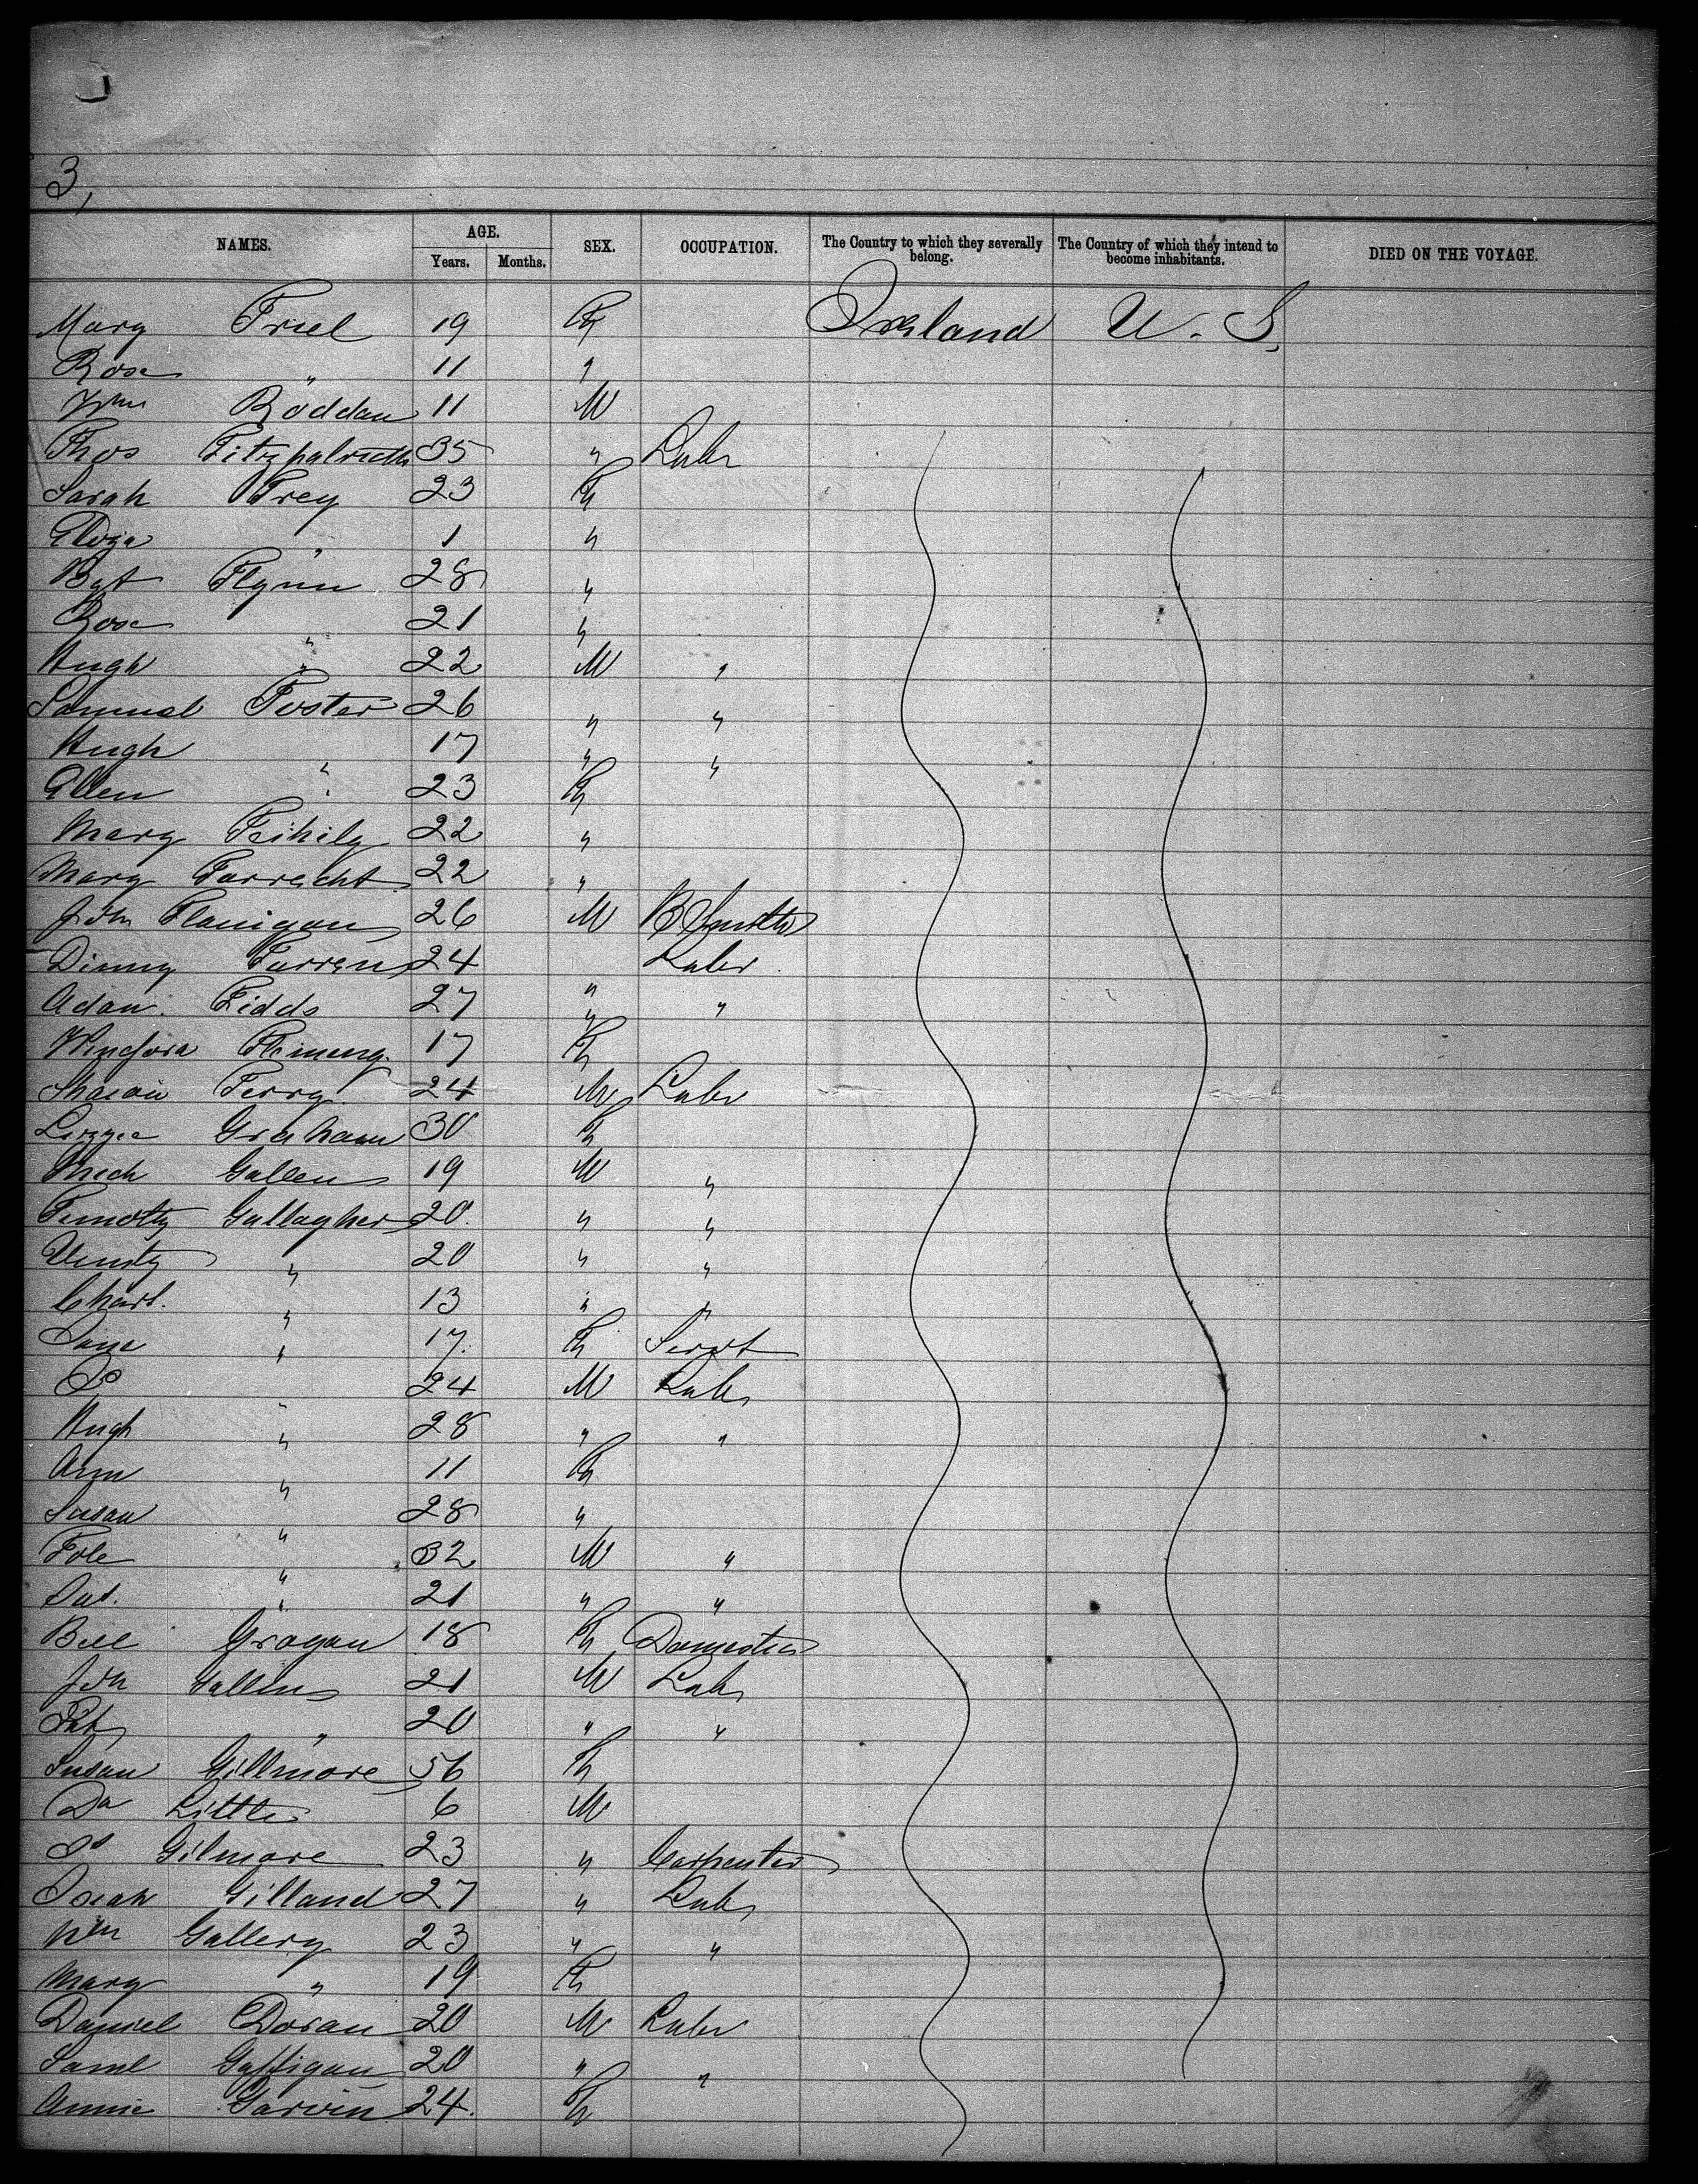 3,
NAMES. AGE. SEX. OCCUPATION. The Country to which they severally belong. The Country of which they intend to become inhabitants. DIED ON THE VOYAGE.
Years. Months.
Mary Friel 19 F Ireland U. S.
Rose " 11 "
Wm Roddan 11 M
Thos 35 " Labr
Sarah Frey 23 F
Eliza " 1 "
Bgt Flynn 28 "
Rose " 21 "
Hugh " 22 M "
Samuel Foster 26 " "
Hugh " 17 " "
Ellen " 23 F
Mary Feihily 22 "
Mary 22 "
John Flanigan 26 M B Smith
Dinny Farren 24 " Labr
Adam Fidds 27 " "
Fleming 17 F
Ferry 24 M Labr
Lizzie Graham 30 F
Mich Gallen 19 M "
Timothy Gallagher 20 " "
" 20 " "
Charl. " 13 " "
Jane " 17 F Servt
" 24 M Labr
Hugh " 28 " "
Ann " 11 F
Susan " 28 "
" 32 M "
Pat. " 21 " "
Bell Grogan 18 F Domestic
Jon Gallen 21 M Labr
Pat " 20 " "
Susan Gillmore 56 F
Da Little 6 M
Gilmore 23 " Carpenter
Gilland 27 " Labr
Wm Gallery 23 " "
Mary " 19 F
Daniel Doran 20 M Labr
Saml Gaffigan 20 " "
Annie Garvin 24 F